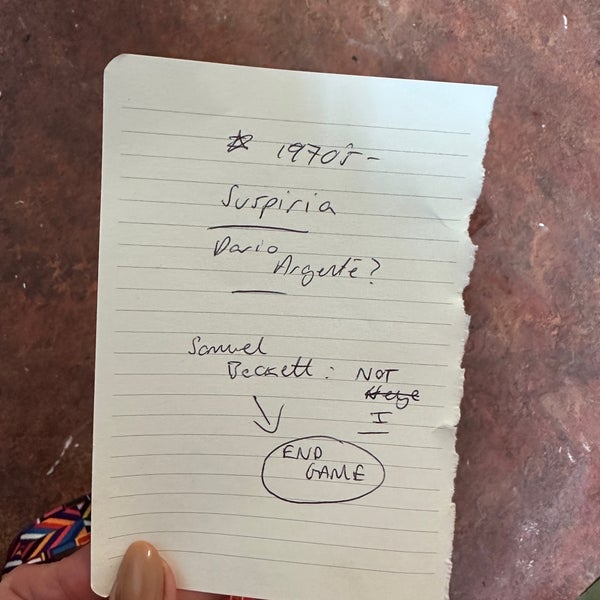 1970s -
Suspiria
Dario
Argente?
Samuel
Beckett: NOT
I
END
GAME